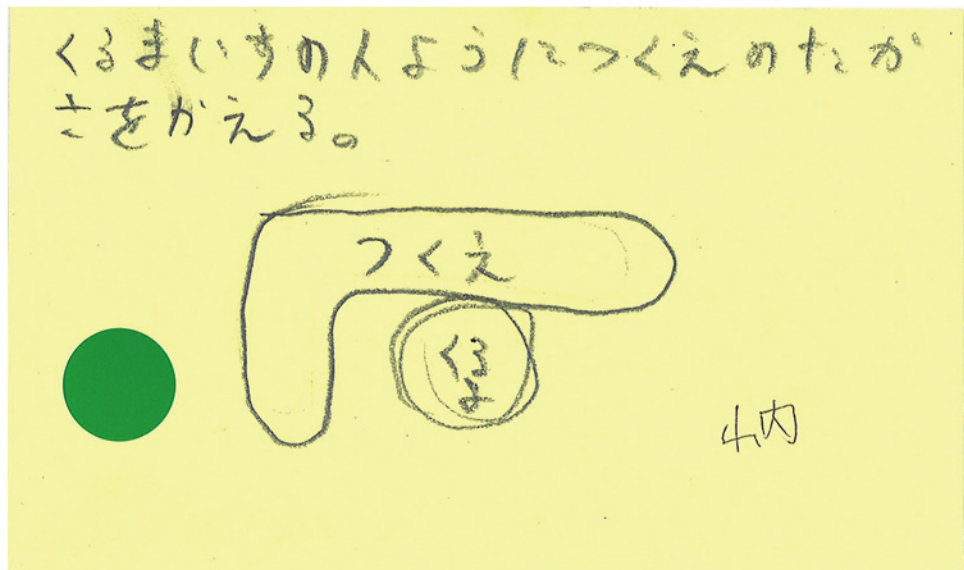 くるまいすの人ようにつくえのたか
さをかえる。
つくえ
くる
ま
山内